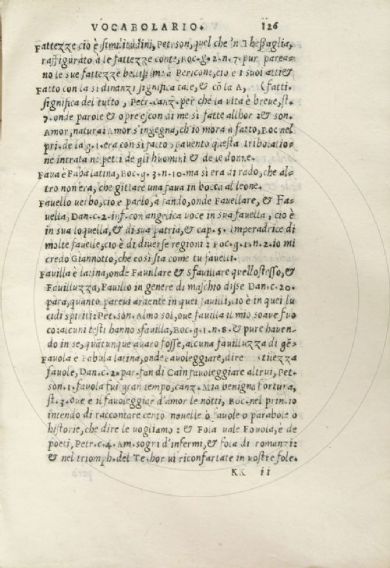 VOCABOLARIO. 126
Fattezze cio è similitudini, Pet. son, quel che 'n Thessaglia,
raffigurato à le fattezze conte, Boc. g. 2. n. 7. pur paren-
no le sue fattezze bellissime à Pericone, cio è i suoi atti &
Fatto con la si dinanzi significa tale, & cō la A, (fatti.
significa del tutto, Petr. canz. per che la vita è breue, st.
7. onde parole & opre escon di me sì fatte allhor & son.
Amor, natura: Amor s'insegna, ch'io mora a fatto, Boc nel
pri. de la g. 1. era con sì fatto spauento questa tribolatio-
ne intrata ne petti de gli huomini & de le donne.
Faua è Faba latina, Boc. g. 3. n. 10. ma sì era di rado, che al-
tro non era, che gittare una faua in bocca al leone.
Fauello uerbo, cio è parlo, à fando, onde Fauellare, & Fa-
uella, Dan. c. 2. inf. con angelica uoce in sua fauella, cio è
in sua loquella, & di sua patria, & cap. 5. Imperadrice di
molte fauelle, cio è di diuerse regioni: Boc. g. 1. n. 2. io mi
credo Giannotto, che così sta come tu fauelli.
Fauilla è latina, onde Fauillare & sfauillare quello stesso, &
Fauilluzza, Fauillo in genere di maschio disse Dan. c. 20.
para, quanto pareua ardente in quei fauilli, io è in quei lu
cidi spiriti: Pet. son. Almo sol, oue fauilla il mio soaue fuo
co: alcuni testi hanno sfauilla, Boc. g. 1. n. 8. & pure hauen-
do in se, quātunque auaro fosse, alcuna fauilluzza di gē=
Fauola è Fabula latina, onde Fauoleggiare, dire (tilezza
fauole, Dan. c. 2. par. fan di Cain fauoleggiare altrui, Pet-
son. 1. fauola fui gran tempo, canz. Mia benigna fortuna,
st. 3. Oue è il fauoleggiar d'amor le notti, Boc. nel prin. io
intendo di raccontare cento nouelle ò fauole o parabole o
historie, che dire le uogliamo: & Fola uale Fouola, è de
poeti, Petr. c. 4. Am. sogni d'infermi, & fola di romanzi:
& nel triomph. del Te. hor ui riconfortate in uostre fole.
KK ii